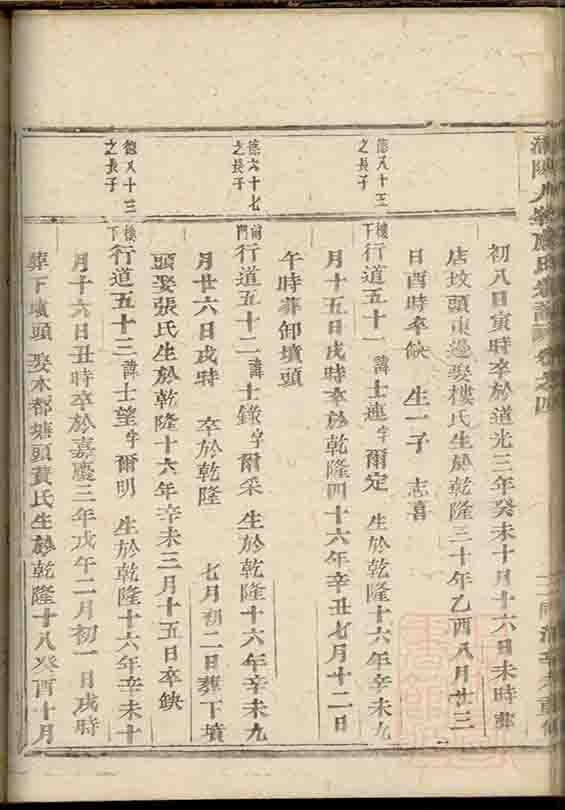 初八日寅時卒於道光三年癸未十月十六日未時葬
店坟頭東邊娶樓氏生於乾隆三十年乙酉八月廿三
日酉時卒缺 生一子 志喜
德八十五
之長子
樓下 行道五十一 諱士連字爾定 生於乾隆十六年辛未九
月十五日戌時卒於乾隆四十六年辛丑七月十二日
午時葬卸墳頭
德六十七
之長子
前門 行道五十二 諱士鎌字爾采 生於乾隆十六年辛未九
月廿六日戌時 卒於乾隆 七月初二日葬下墳
頭娶張氏生於乾隆十六年辛未三月十五日卒缺
德八十三
之長子
樓下 行道五十三 諱士望字爾明 生於乾隆十六年辛未十
月十六日丑時卒於嘉慶三年戊午二月初一日戌時
葬下墳頭 娶本都塘頭黃氏生於乾隆十八癸酉十月